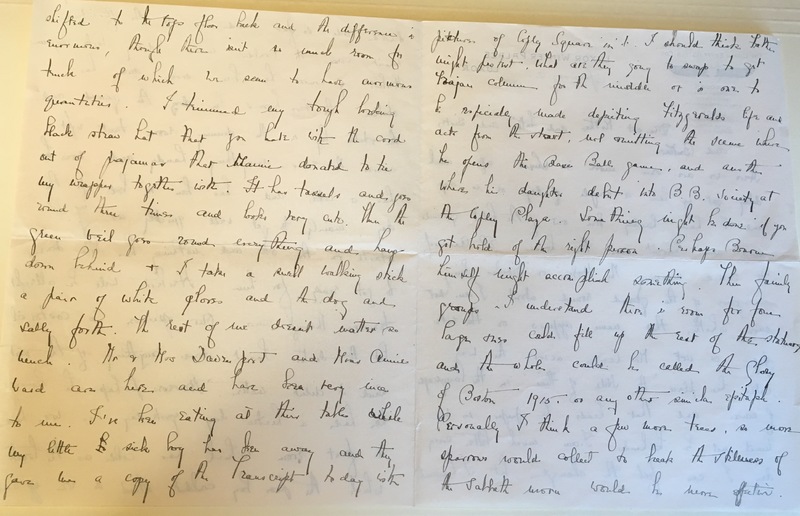 shifted to the top floor back and the difference is
enormous, though there isn't so much room for
trunk of which we seem to have enormous
quantities. I trimmed my tough looking
black straw hat that you hate with the cord
out of pajamas that Mamie donated to tie
my wrapper together with. It has tassels and goes
round three times and looks very cute. Then the
green veil goes round everything and hangs
down behind + I take a small walking stick
a pair of white gloves and the dog and
sally forth. The rest of me doesnt matter so
much. Mr & Mrs Davenport and Miss Annie
Ward are here and have been very nice
to me. I've been eating at their table while
my little sick boy has been away and they
gave me a copy of the Transcript to day with
picture of Copley Square in it. I should think
might protest. What are they going to swap to get
Trajan column for the middle or is one to
be especially made depicting Fitzgeralds life and
acts from the start, not omitting the scene where
he opens the Base Ball game, and another
where his daughter debut into B.B. Society at
the Copley Plaza. Something might be done if you
got hold of the right person. Perhaps Bourne
himself might accomplish something. The family
groups - I understand there is room for four
large ones could fill up the rest of the statuary
and the whole could be called the Glory
of Boston 1915 - or any other similar epitaph.
Personally I think a few more trees, so more
sparrows would collect to break the stillness of
the Sabbath morn would be more